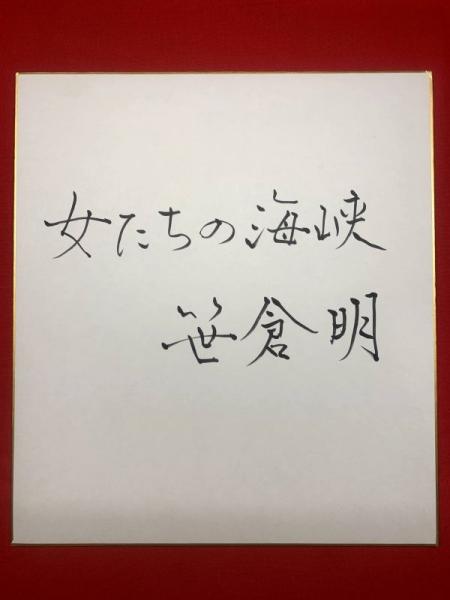 女たちの海峡
笹倉明